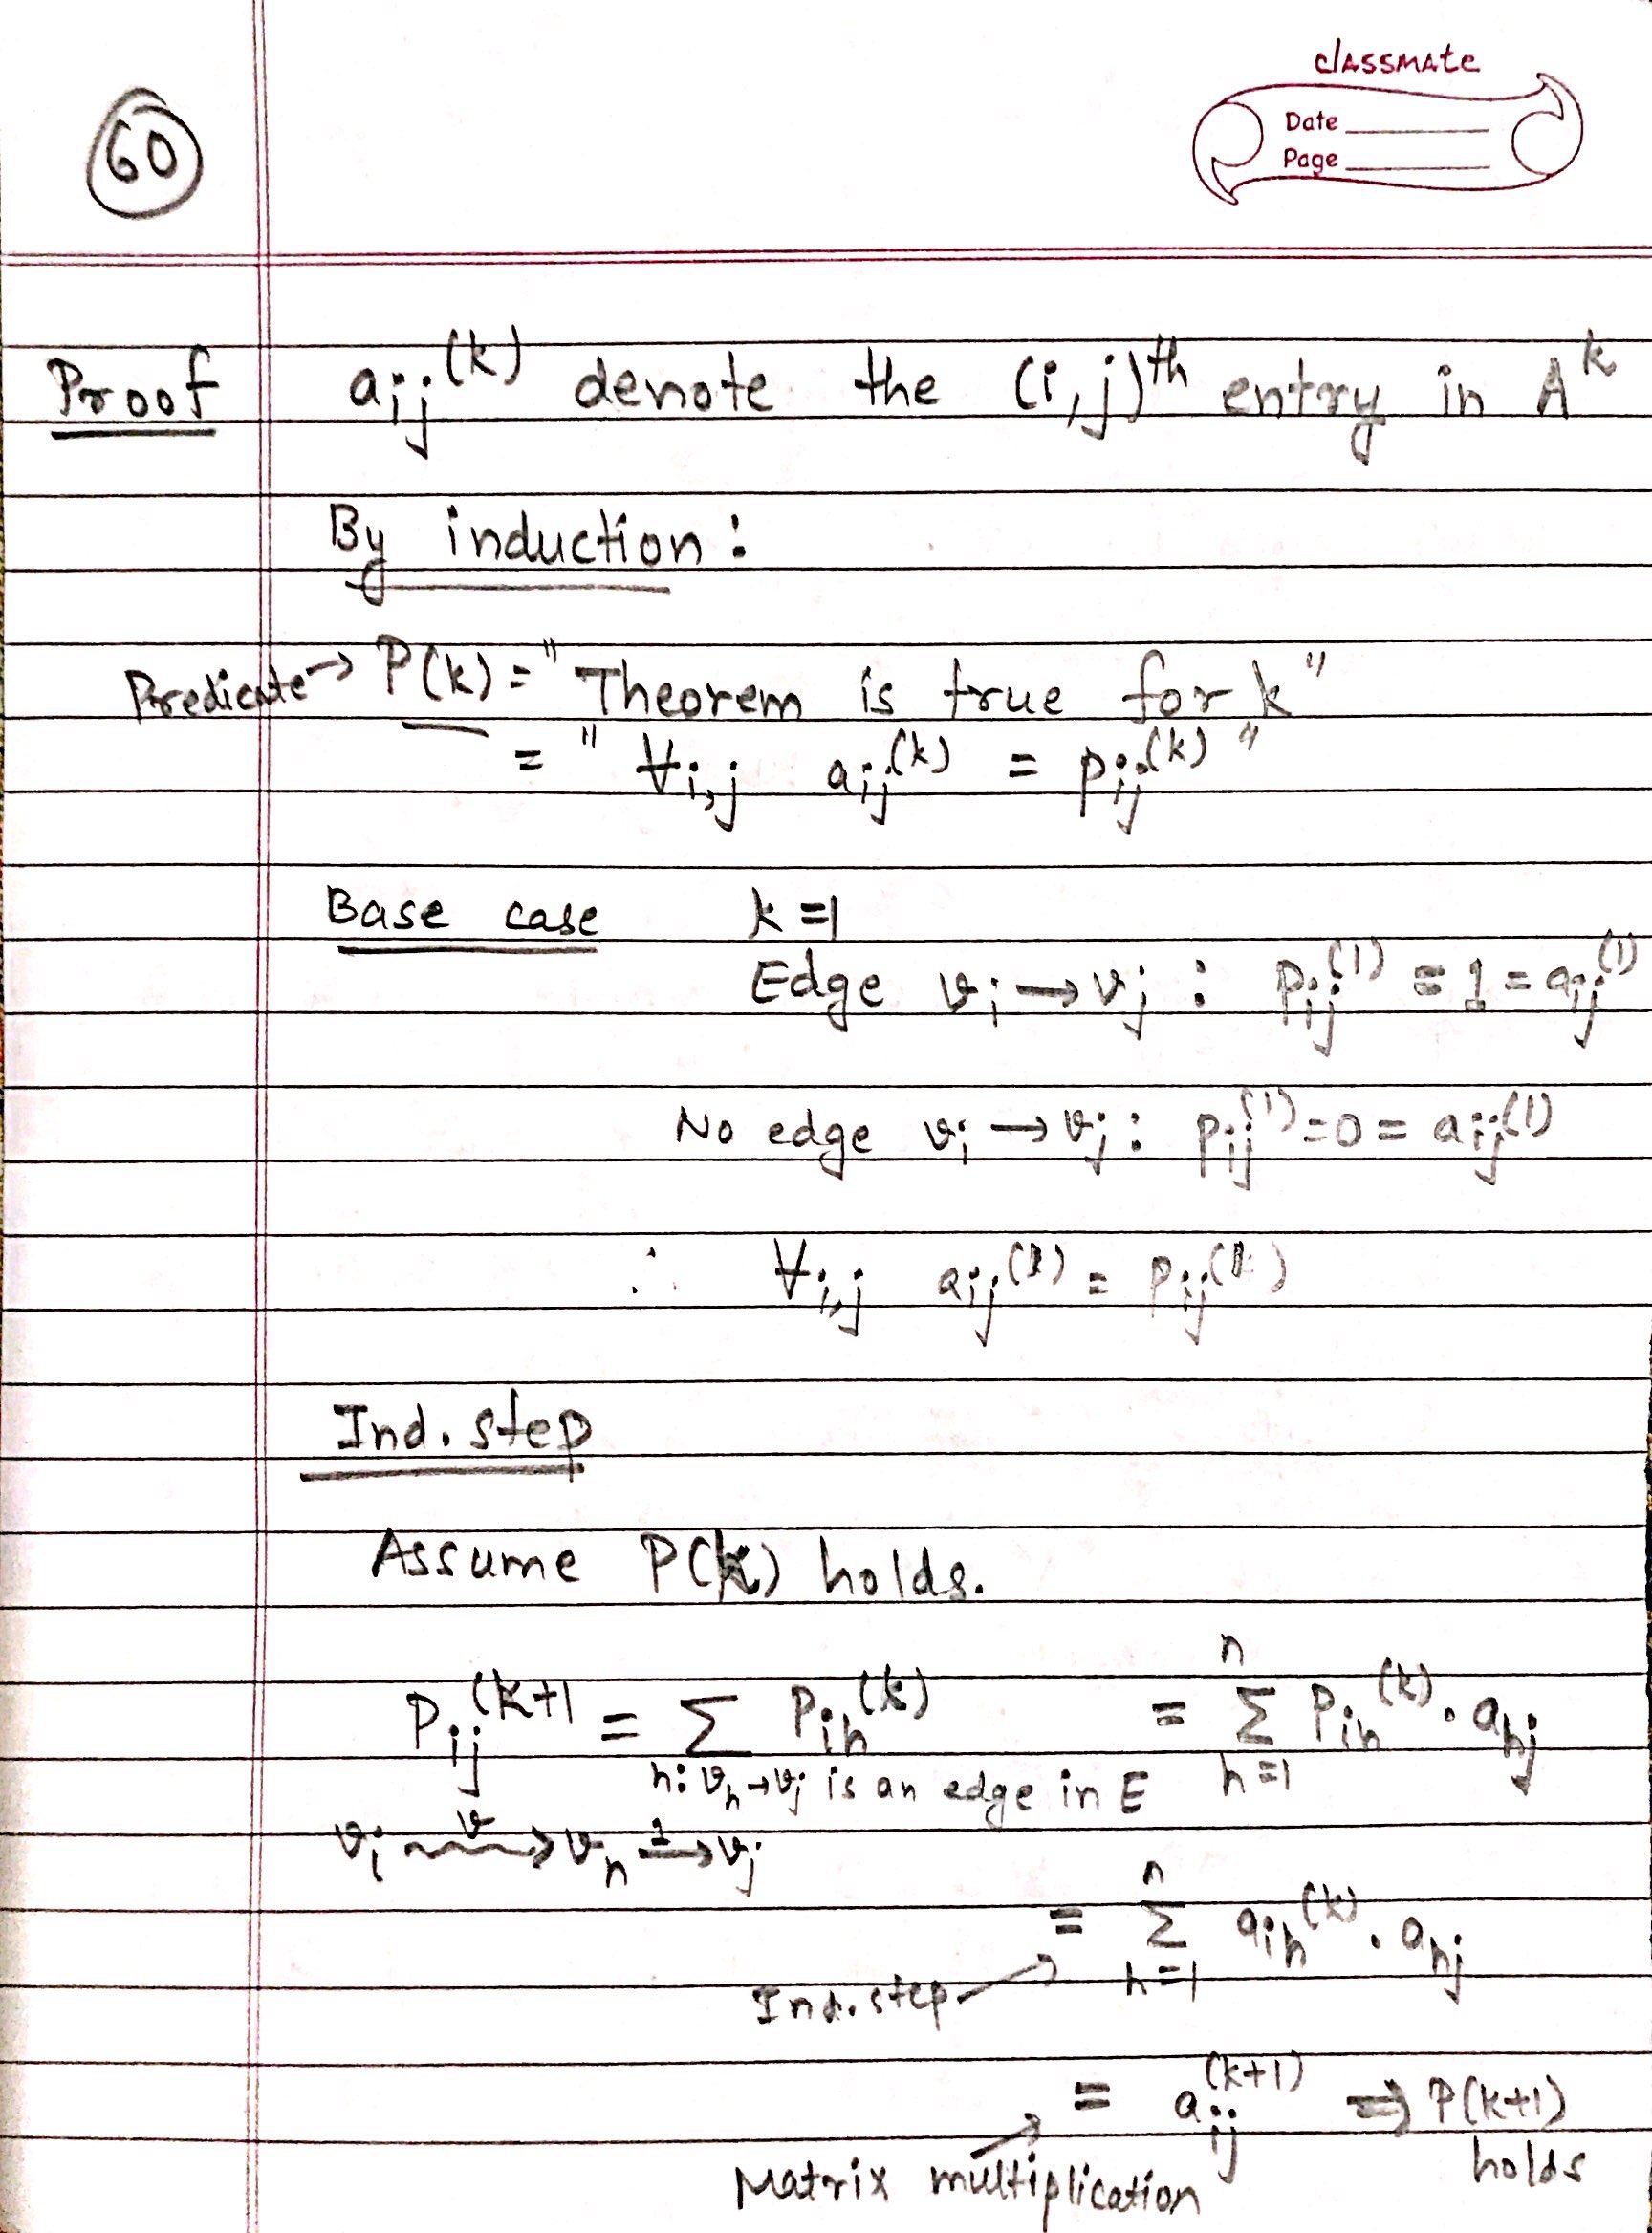 classmate
Date
Page
60
Proof a_ij^(k) denote the (i,j)^th entry in A^k
By induction :
Predicate → P(k) = "Theorem is true for k"
= "∀i,j a_ij^(k) = p_ij^(k)"
Base case k=1
Edge v_i → v_j : p_ij^(1) = 1 = a_ij^(1)
No edge v_i → v_j : p_ij^(1) = 0 = a_ij^(1)
∴ ∀i,j a_ij^(1) = p_ij^(1)
Ind. step
Assume P(k) holds.
P_ij^(k+1 = Σ_{h: v_h→v_j is an edge in E} P_ih^(k) = Σ_{h=1}^n P_ih^(k) · a_hj
v_i ~v~> v_h -1-> v_j
= Σ_{h=1}^n a_ih^(k) · a_hj
Ind. step
= a_ij^(k+1) ⇒ P(k+1)
holds
Matrix multiplication